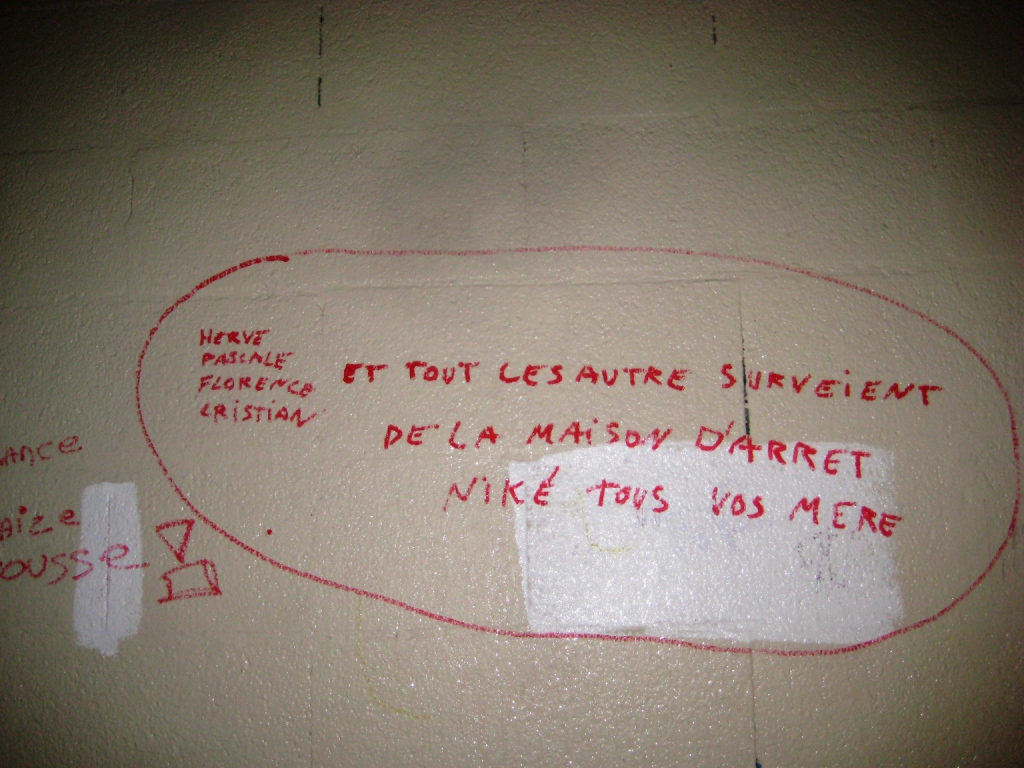 HERVE
PASCALE
FLORENCE
CRISTIAN
ET TOUT LES AUTRE SURVEIENT
DE LA MAISON D'ARRET
NIKÉ TOUS VOS MERE
ANCE
AIZE
OUSSE